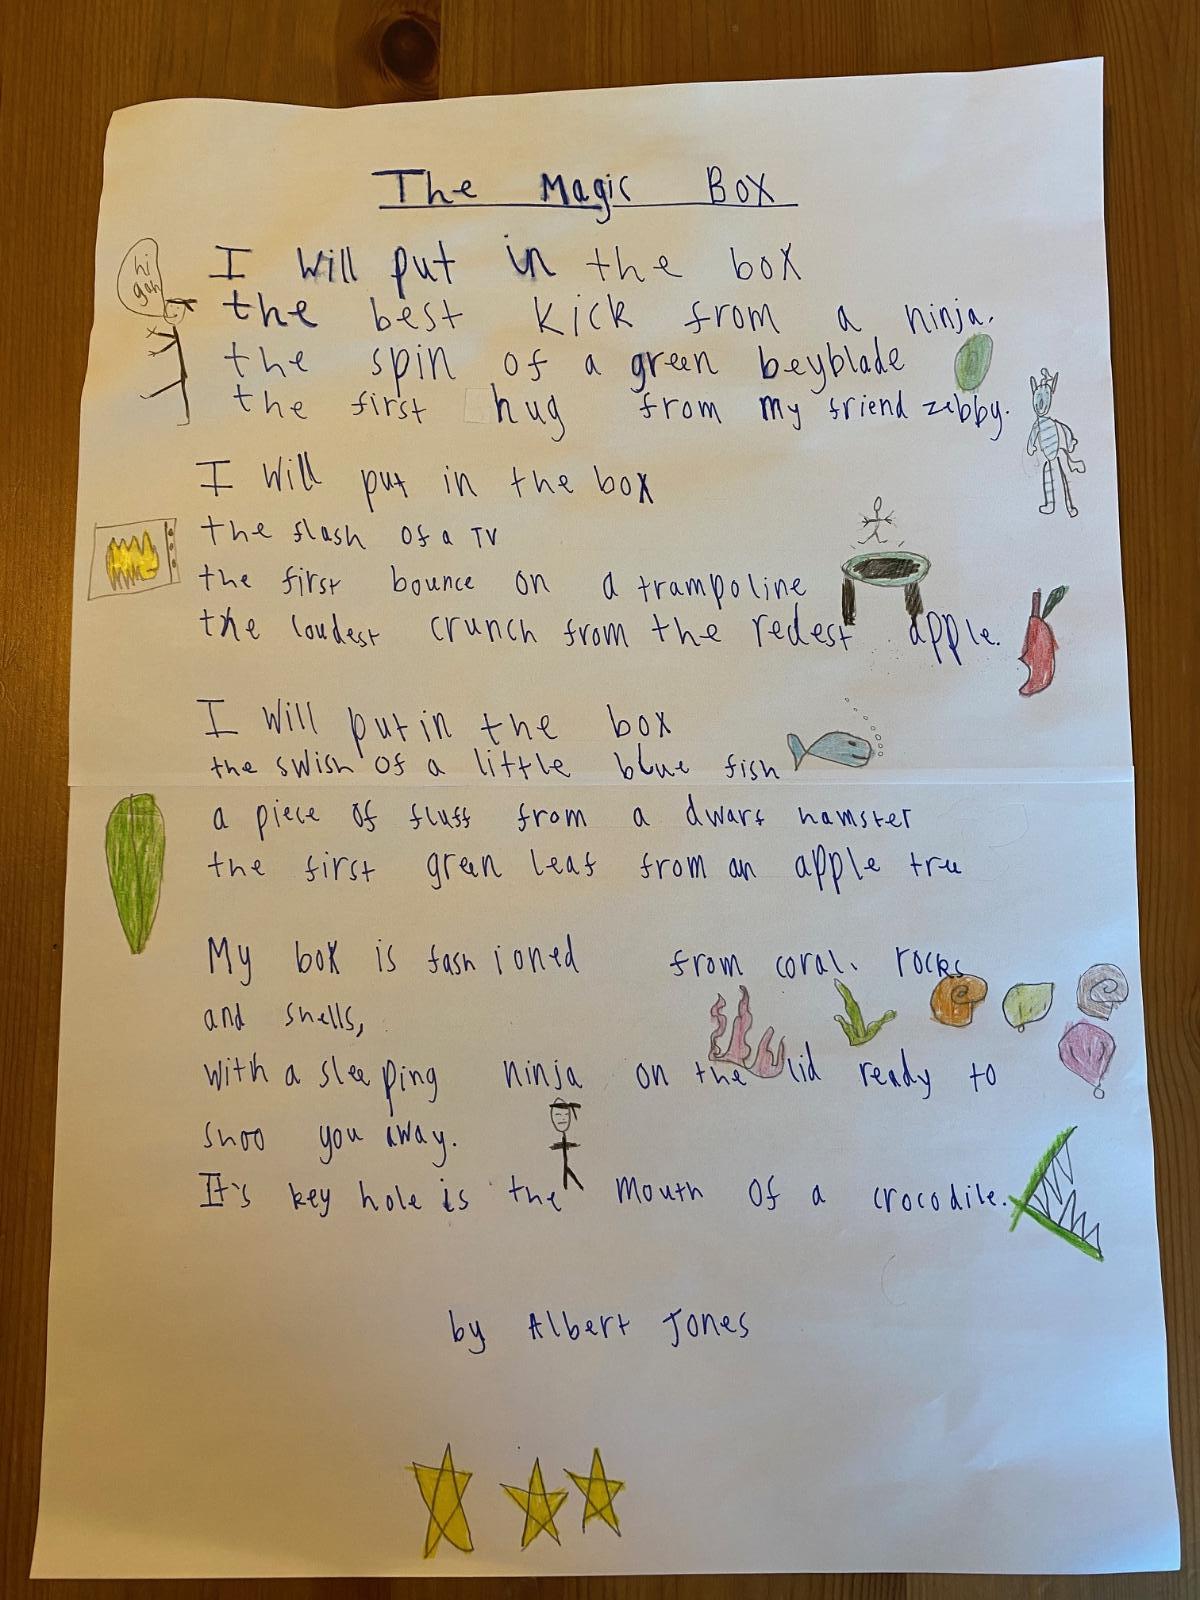 The Magic Box
hi
gah
I will put in the box
the best kick from a ninja.
the spin of a green beyblade
the first hug from my friend zebby.
I will put in the box
the flash of a TV
the first bounce on a trampoline
the loudest crunch from the redest apple.
I will put in the box
the swish of a little blue fish
a piece of fluff from a dwarf hamster
the first green leaf from an apple tree
My box is fashioned from coral, rocks
and shells,
with a sleeping ninja on the lid ready to
shoo you away.
It's key hole is the mouth of a crocodile.
by Albert Jones